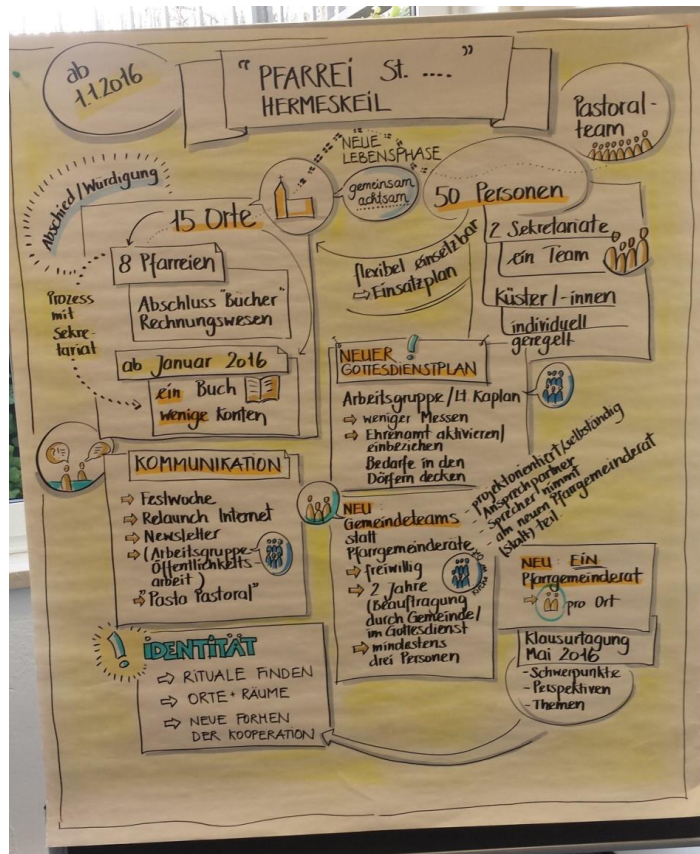 ab
1.1.2016
"PFARREI St. ...."
HERMESKEIL
Pastoral-
team
NEUE
LEBENSPHASE
gemeinsam
achtsam
Abschied/Würdigung
15 Orte
50 Personen
8 Pfarreien
Abschluss "Bücher"
Rechnungswesen
Prozess
mit
Sekre-
tariat
ab Januar 2016
ein Buch
wenige Konten
flexibel einsetzbar
⇨ Einsatzplan
2 Sekretariate
ein Team
Küster/-innen
individuell
geregelt
NEUER !
GOTTESDIENSTPLAN
Arbeitsgruppe/Lt. Kaplan
⇨ weniger Messen
⇨ Ehrenamt aktivieren/
einbeziehen
Bedarfe in den
Dörfern decken
KOMMUNIKATION
⇨ Festwoche
⇨ Relaunch Internet
⇨ Newsletter
⇨ (Arbeitsgruppe
Öffentlichkeits-
arbeit)
⇨ "Pasta Pastoral"
NEU
Gemeindeteams
statt
Pfarrgemeinderäte
⇨ freiwillig
⇨ 2 Jahre
(Beauftragung
durch Gemeinde/
im Gottesdienst
⇨ mindestens
drei Personen
- projektorientiert/selbständig
- Ansprechpartner
- Sprecher nimmt
am neuen Pfarrgemeinderat
(statt) teil
NEU: EIN
Pfarrgemeinderat
⇨ pro Ort
Klausurtagung
Mai 2016
- Schwerpunkte
- Perspektiven
- Themen
! IDENTITÄT
⇨ RITUALE FINDEN
⇨ ORTE + RÄUME
⇨ NEUE FORMEN
DER KOOPERATION